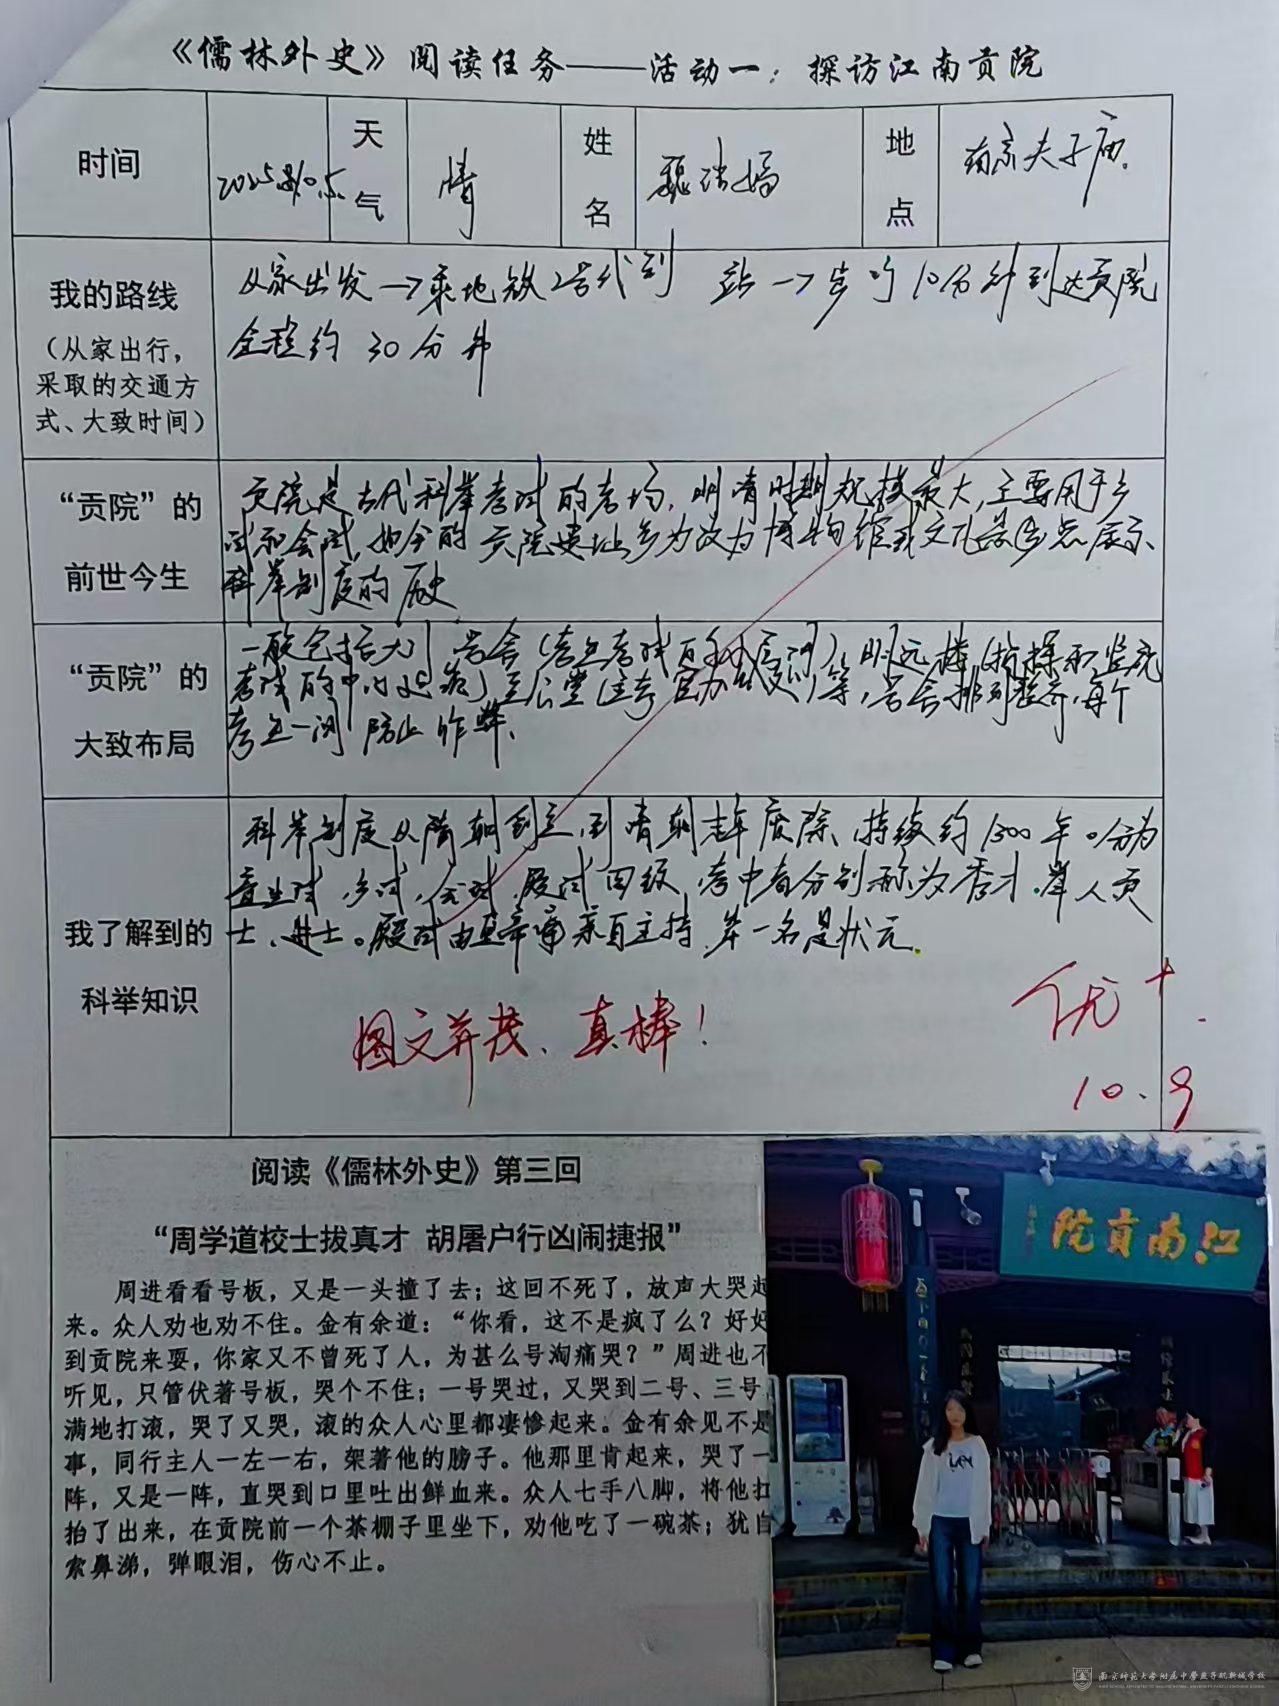 《儒林外史》阅读任务——活动一：探访江南贡院
时间
2025.10.5.
天气
晴
姓名
地点
南京夫子庙.
我的路线
（从家出行，
采取的交通方
式、大致时间）
从家出发→乘地铁2号代到 站→步约10分钟到达贡院
全程约30分钟
“贡院”的
前世今生
贡院是古代科举考试的考场，明清时期规模最大，主要用于乡
试和会试，如今的贡院遗址多为改为博物馆或文化景点展示
科举制度的历史
“贡院”的
大致布局
一般包括大门，号舍（考生考试 ）明远楼（指挥和监视
考试的中心建筑）至公堂（ ）等，号舍排列整齐，每个
考生一间防止作弊、
我了解到的
科举知识
科举制度从隋朝 ，到清朝 废除，持续约1300年。分为
童生试，乡试，会试，殿试四级，考中者分别称为秀才.举人贡
士、进士。殿试由皇帝 亲自主持 第一名是状元.
图文并茂、真棒！
优+.
10.9
阅读《儒林外史》第三回
“周学道校士拔真才 胡屠户行凶闹捷报”
周进看看号板，又是一头撞了去；这回不死了，放声大哭起
来。众人劝也劝不住。金有余道：“你看，这不是疯了么？好好
到贡院来耍，你家又不曾死了人，为甚么号淘痛哭？”周进也不
听见，只管伏著号板，哭个不住；一号哭过，又哭到二号、三号
满地打滚，哭了又哭，滚的众人心里都凄惨起来。金有余见不是
事，同行主人一左一右，架著他的膀子。他那里肯起来，哭了一
阵，又是一阵，直哭到口里吐出鲜血来。众人七手八脚，将他扛
抬了出来，在贡院前一个茶棚子里坐下，劝他吃了一碗茶；犹自
索鼻涕，弹眼泪，伤心不止。
院贡南江
南京师范大学附属中学燕子矶新城学校